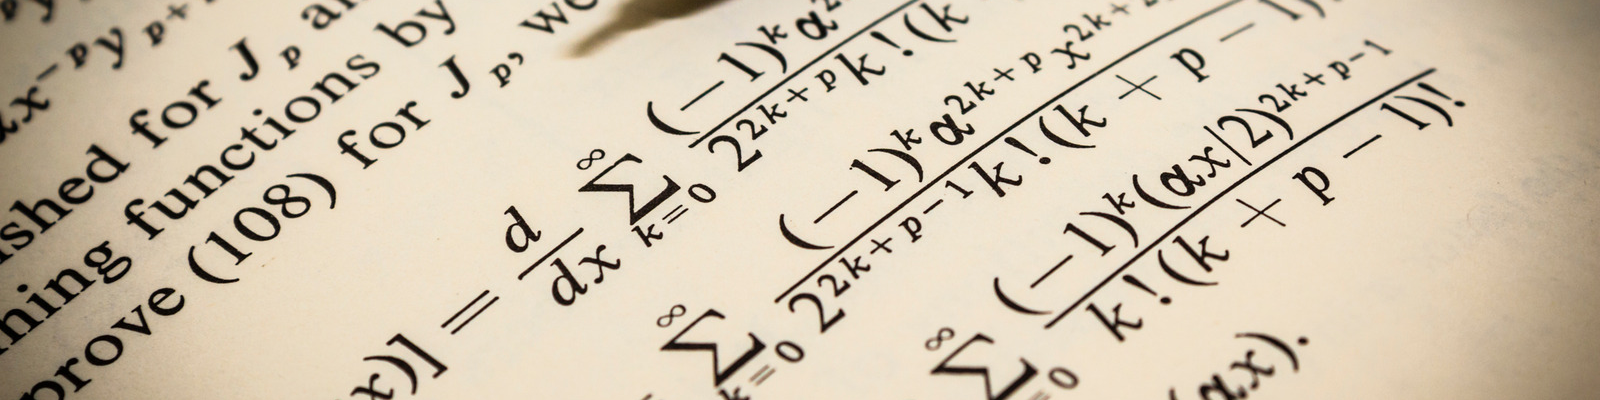 x^{-p}y_{p+
shed for J_p
hing functions by
prove (108) for J_p, we
x)] = \frac{d}{dx} \sum_{k=0}^{∞} \frac{(-1)^k α^2}{2^{2k+p} k!(k}
\sum_{k=0}^{∞} \frac{(-1)^k α^{2k+p} x^{2k+2}}{2^{2k+p-1} k!(k + p - 1)!}
\sum_{=0}^{∞} \frac{(-1)^k (αx/2)^{2k+p-1}}{k!(k + p - 1)!}
(αx).